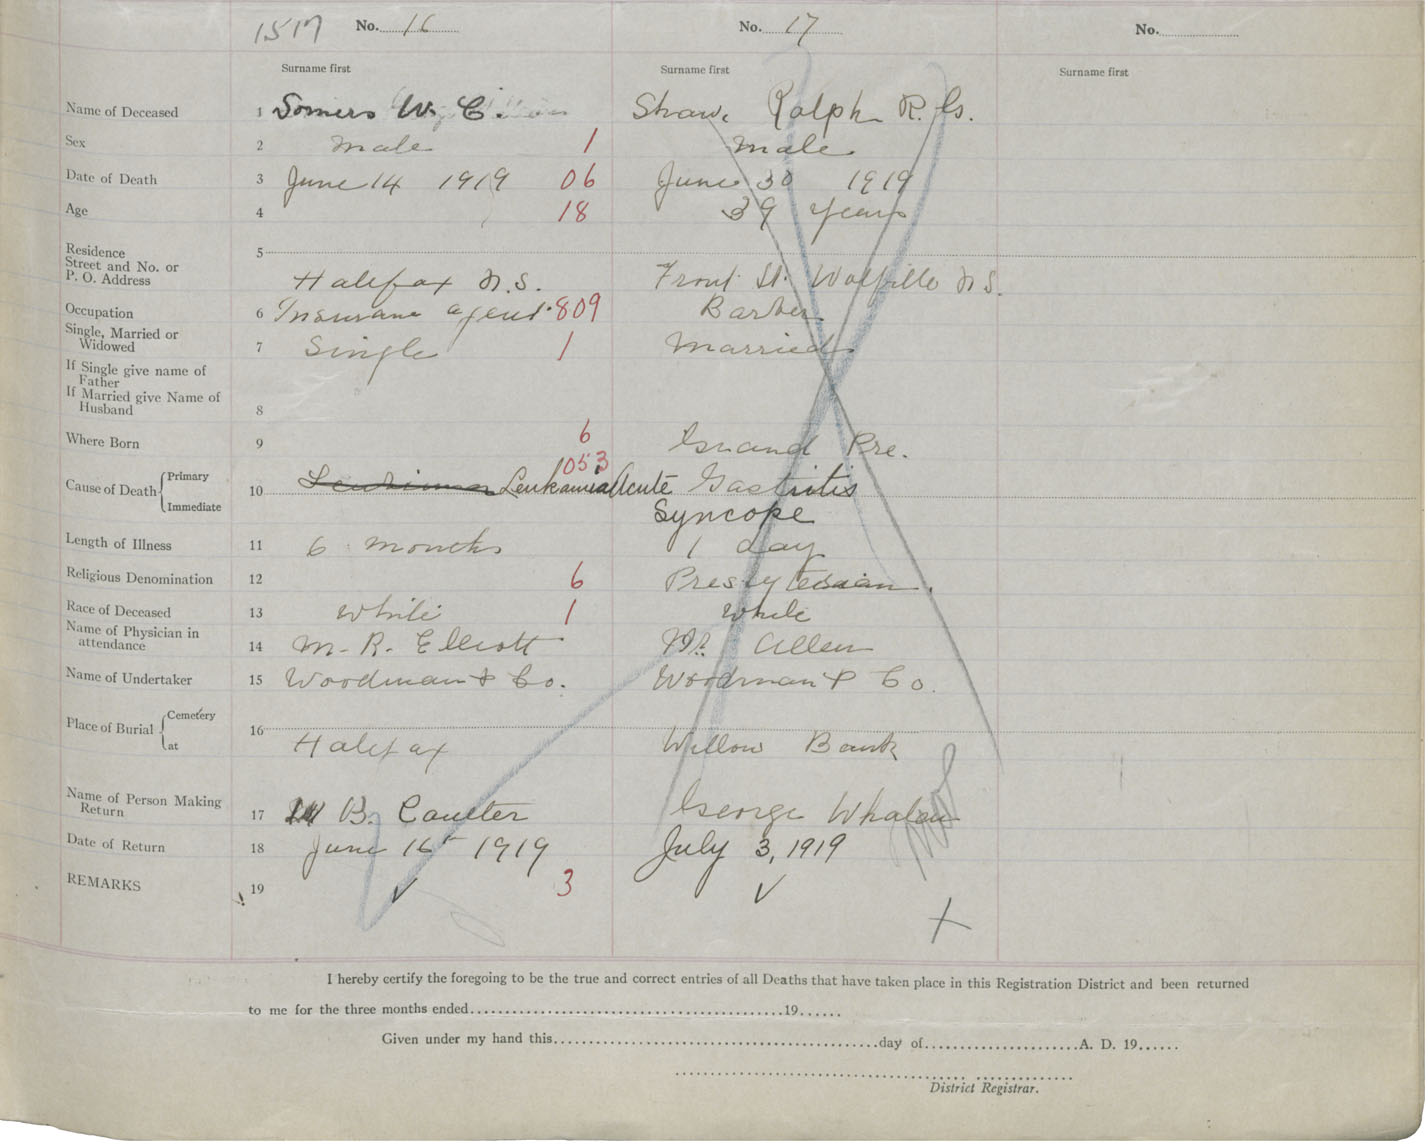 1517 No. 16 No. 17 No.
Surname first Surname first Surname first
Name of Deceased 1 Somers W. C. Shaw, Ralph R. Gs.
Sex 2 Male 1 Male
Date of Death 3 June 14 1919 06 June 30 1919
Age 4 18 39 years
Residence
Street and No. or
P. O. Address 5 Halifax N.S. Front St. Wolfville N.S.
Occupation 6 Insurance agent 809 Barber
Single, Married or
Widowed 7 Single 1 Married
If Single give name of
Father
If Married give Name of
Husband 8
Where Born 9 6 Grand Pre.
1053
Cause of Death Primary
Immediate 10 Leukamia Acute Gastritis
Syncope
Length of Illness 11 6 months 1 day
Religious Denomination 12 6 Presbyterian.
Race of Deceased 13 White 1 White
Name of Physician in
attendance 14 M. R. Elliott Dr. Allen
Name of Undertaker 15 Woodman & Co. Woodman & Co.
Place of Burial Cemetery
at 16 Halifax Willow Bank
Name of Person Making
Return 17 B. Coulter George Whalen
Date of Return 18 June 16th 1919 July 3, 1919
REMARKS 19 ✓ 3 ✓
X
I hereby certify the foregoing to be the true and correct entries of all Deaths that have taken place in this Registration District and been returned
to me for the three months ended 19
Given under my hand this day of A. D. 19
District Registrar.